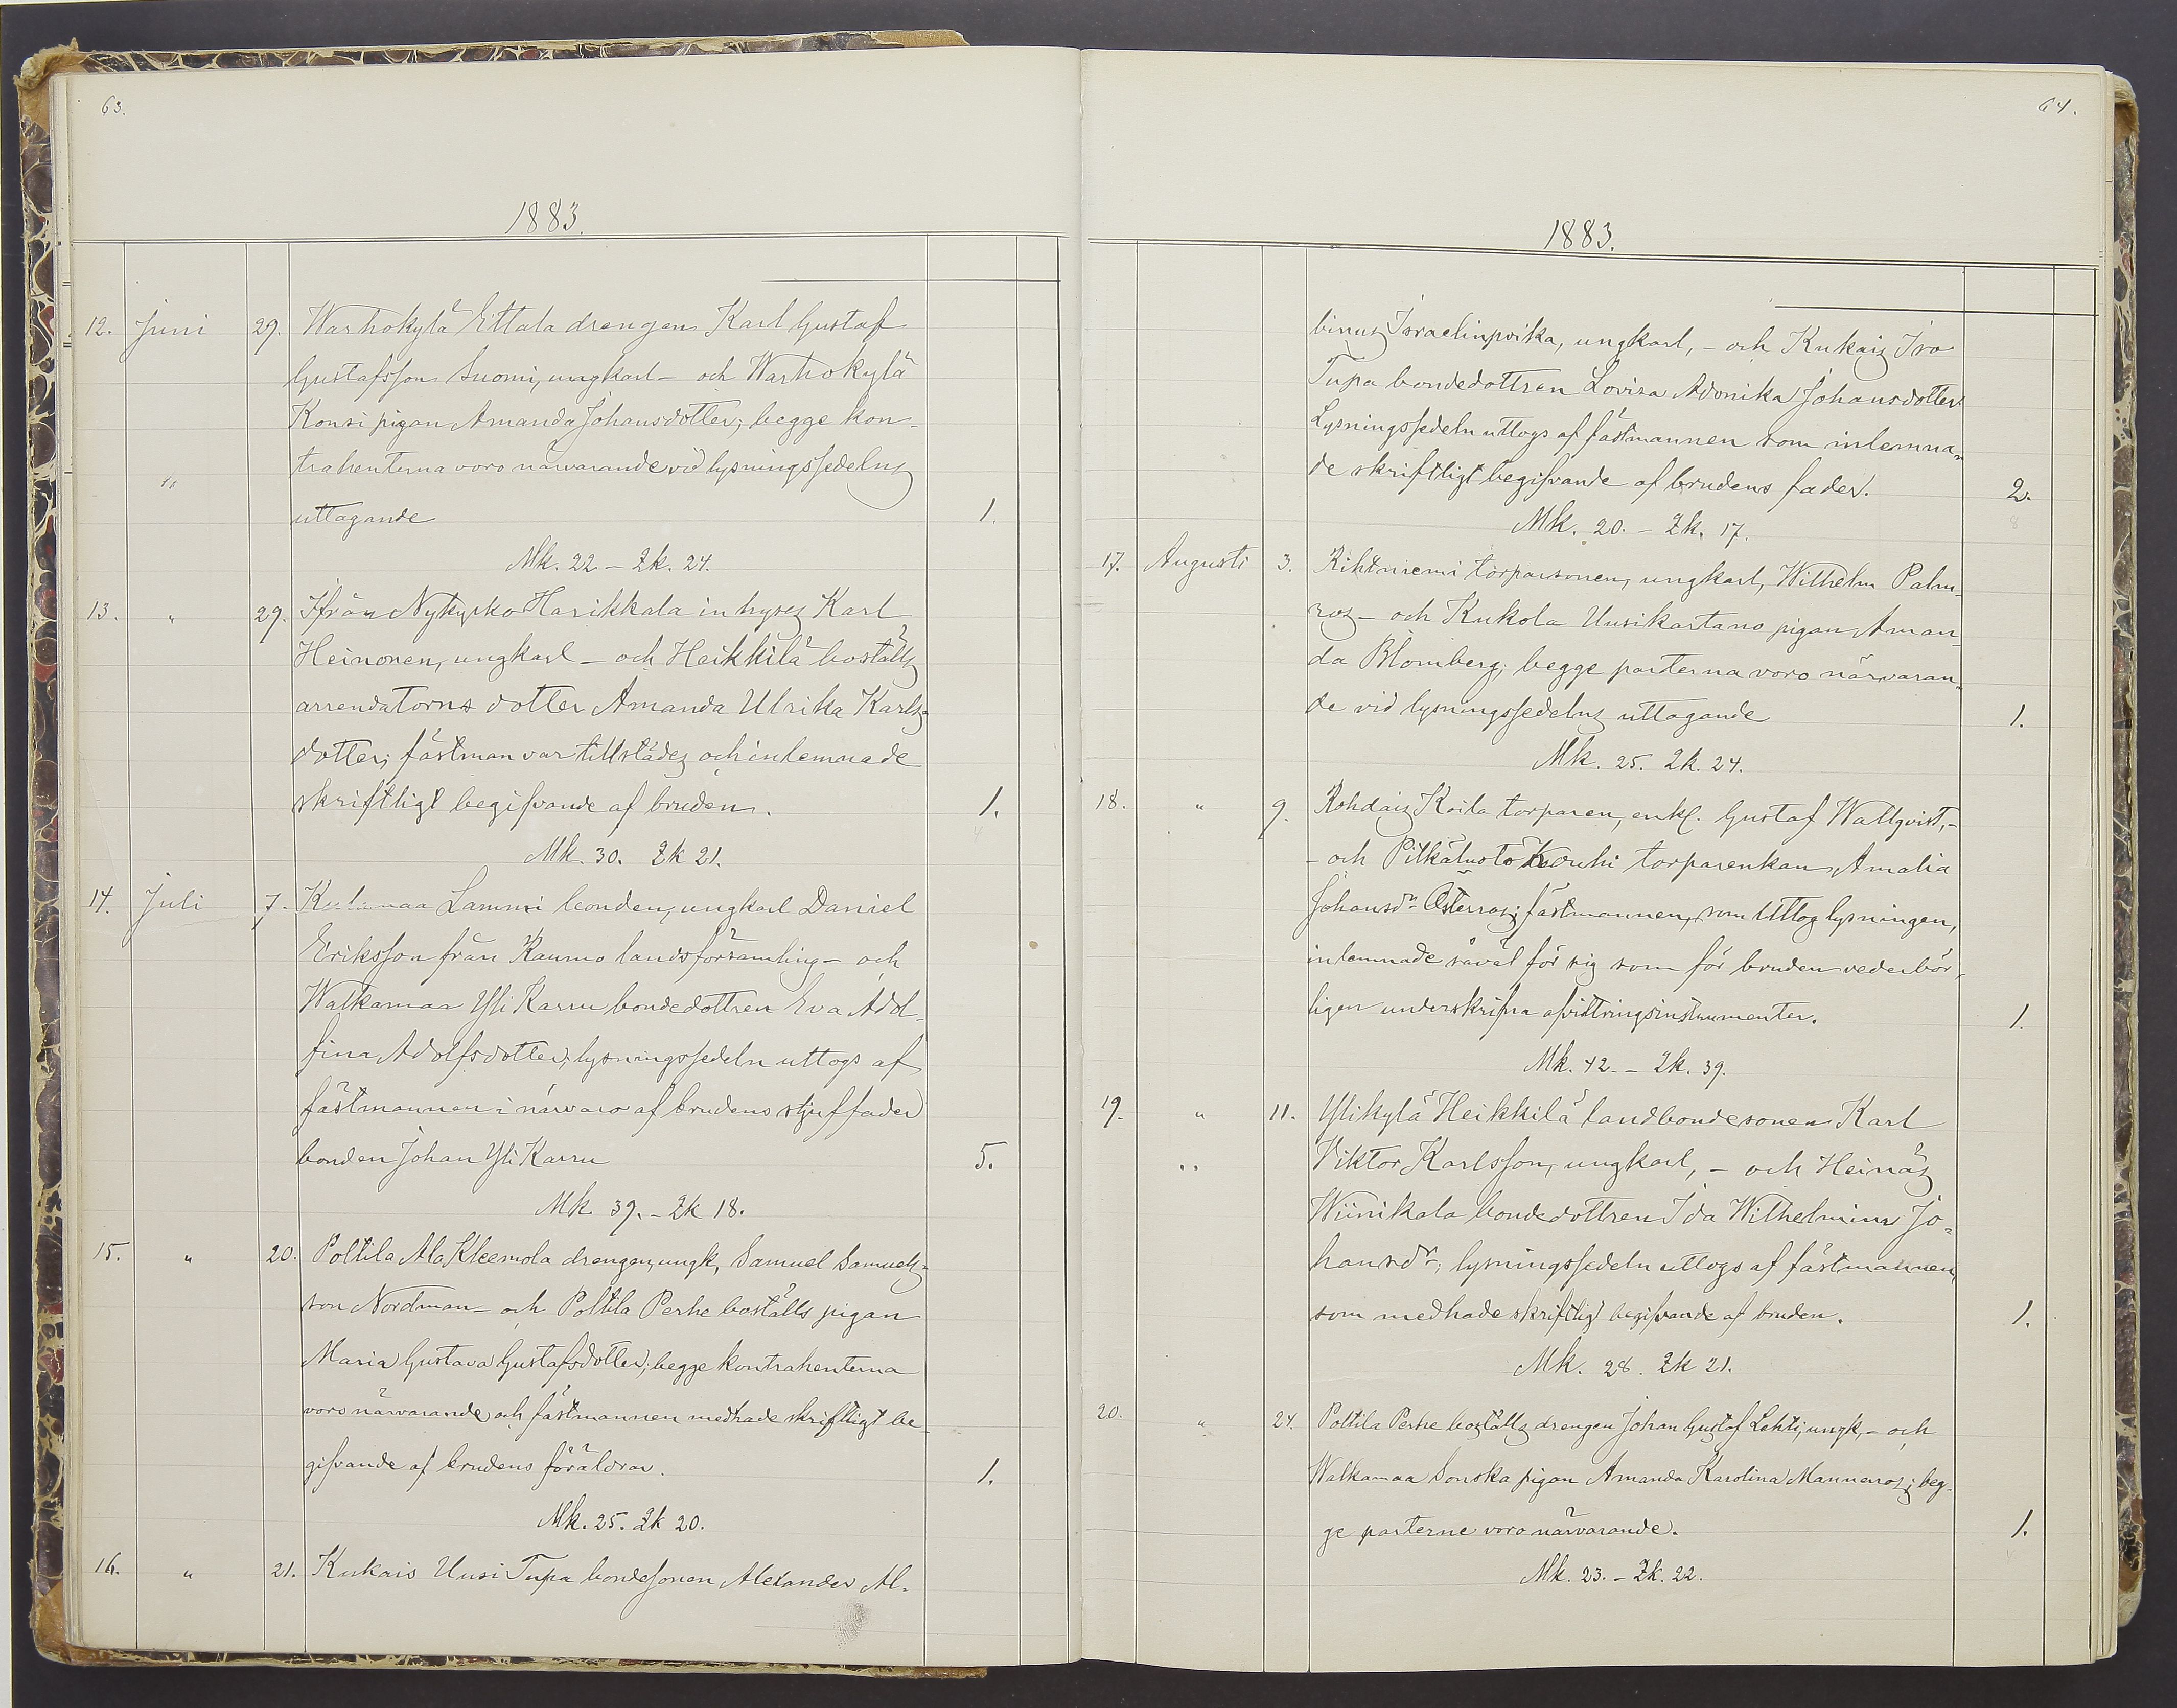 63.
1883.
12. Juni 29. Warhokylä Ettala drengen Karl Gustaf
Gustafsson Suomi, ungkarl – och Warhokylä
Konsi pigan Amanda Johansdotter; begge kon-
trahenterna voro närvarande vid lysningssedelns
uttagande 1.
Mk. 22 – Qk. 24.
13. " 29. Ifrån Nykyrko Harikkala inhyses Karl
Heinonen, ungkarl – och Heikkilä boställs
arrendatorns dotter Amanda Ulrika Karls-
dotter; fästman var tillstädes och inlemnade
skriftligt begifvande af bruden. 1.
Mk. 30. Qk 21.
14. Juli 7. Kulamaa Lammi bonden, ungkarl Daniel
Eriksson från Raumo landsförsamling – och
Walkamaa Yli Karru bondedottren Eva Adol-
fina Adolfsdotter; lysningssedeln uttogs af
fästmannen i närvaro af brudens stjuffader
bonden Johan Yli Karru 5.
Mk. 39. – Qk 18.
15. " 20. Poltila Ala Kleemola drengen, ungk, Samuel Samuels-
son Nordman – och Poltila Perhe boställs pigan
Maria Gustava Gustafsdotter; begge kontrahenterna
voro närvarande och fästmannen medhade skriftligt be-
gifvande af brudens föräldrar. 1.
Mk. 25. Qk 20.
16. " 21. Kukais Uusi Tupa bondesonen Alexander Al-
64.
1883.
binus Israelinpoika, ungkarl, – och Kukais Iso
Tupa bondedottren Lovisa Advonika Johansdotter
Lysningssedeln uttogs af fästmannen som inlemna-
de skriftligt begifvande af brudens fader. 2.
Mk. 20. – Qk. 17.
17. Augusti 3. Rihtniemi torparsonen, ungkarl, Wilhelm Palm-
ros – och Kukola Uusikartano pigan Aman-
da Blomberg; begge parterna voro närvaran-
de vid lysningssedelns uttagande 1.
Mk. 25. Qk. 24.
18. " 9. Rohdais Koila torparen, enkl. Gustaf Wallqvist, –
– och Pitkäluoto torparenkan Amalia
Johansdr Österros; fästmannen, som uttog lysningen,
inlemnade såväl för sig som för bruden vederbör-
ligen underskrifna afvittringsinstrumenter. 1.
Mk. 42. – Qk. 39.
19. " 11. Ylikylä Heikkilä landbondesonen Karl
Viktor Karlsson, ungkarl, – och Heinäs
Wiinikala bondedottren Ida Wilhelmina Jo-
hansdr; lysningssedeln uttogs af fästmannen,
som medhade skriftligt begifvande af bruden. 1.
Mk. 28. Qk 21.
20. " 24. Poltila Perhe boställs drengen Johan Gustaf Lehti, ungk, – och
Walkamaa Sonska pigan Amanda Karolina Manneros; beg-
ge parterne voro närvarande. 1.
Mk. 23. – Qk. 22.